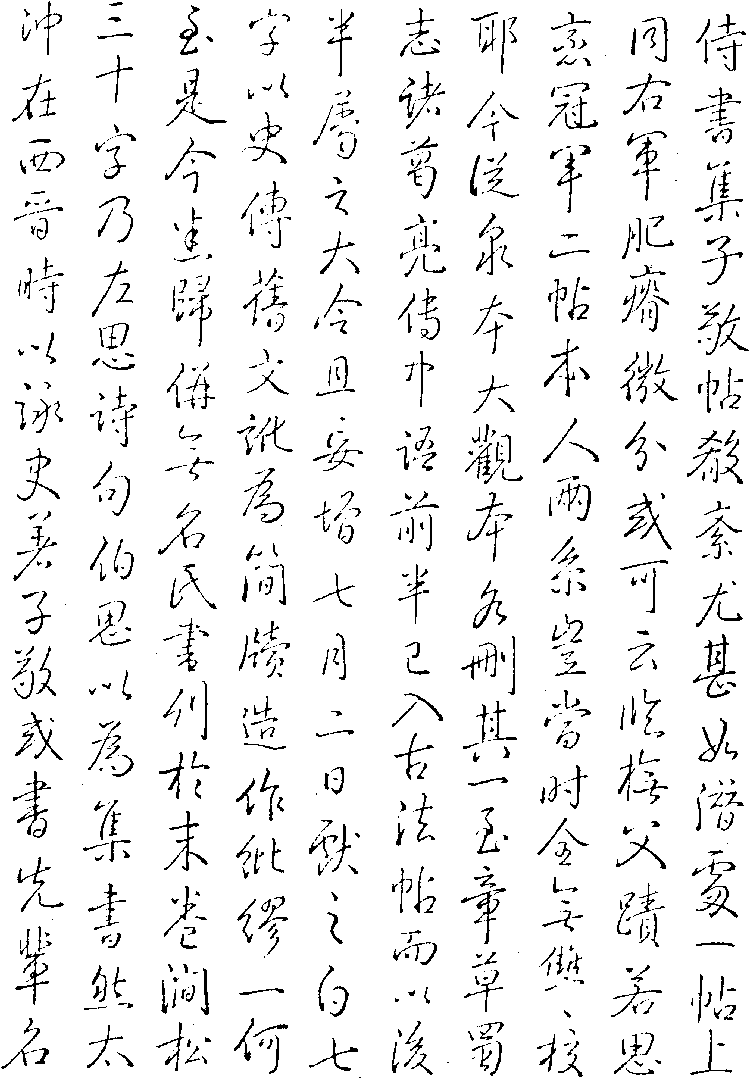 侍書集子敬帖殽紊尤甚如潛處一帖上
同右軍肥瘠微分或可云臨橅父蹟若思
戀冠軍二帖本人兩系豈當时全無讎、校
耶今從泉本大觀本各刪其一至章草蜀
志諸葛亮傳中語前半已入古法帖而以後
半屬之大令且妄增七月二日獻之白七
字以史傳舊文訛為簡牘造作紕繆一何
至是今悉歸併無名氏書列於末卷澗松
三十字乃左思詩句伯思以為集書然太
沖在西晉時以詠史著子敬或書先輩名